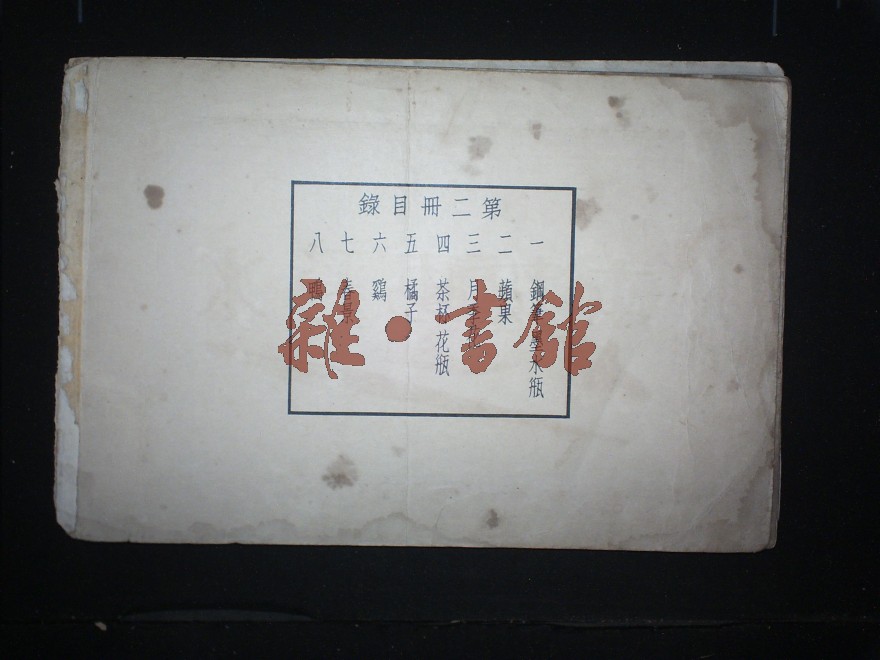 第二冊目錄
一 鋼筆墨水瓶
二 蘋果
三 月季花
四 茶杯花瓶
五 橘子
六 鷄
七 春景
八 鴨
雜·書館